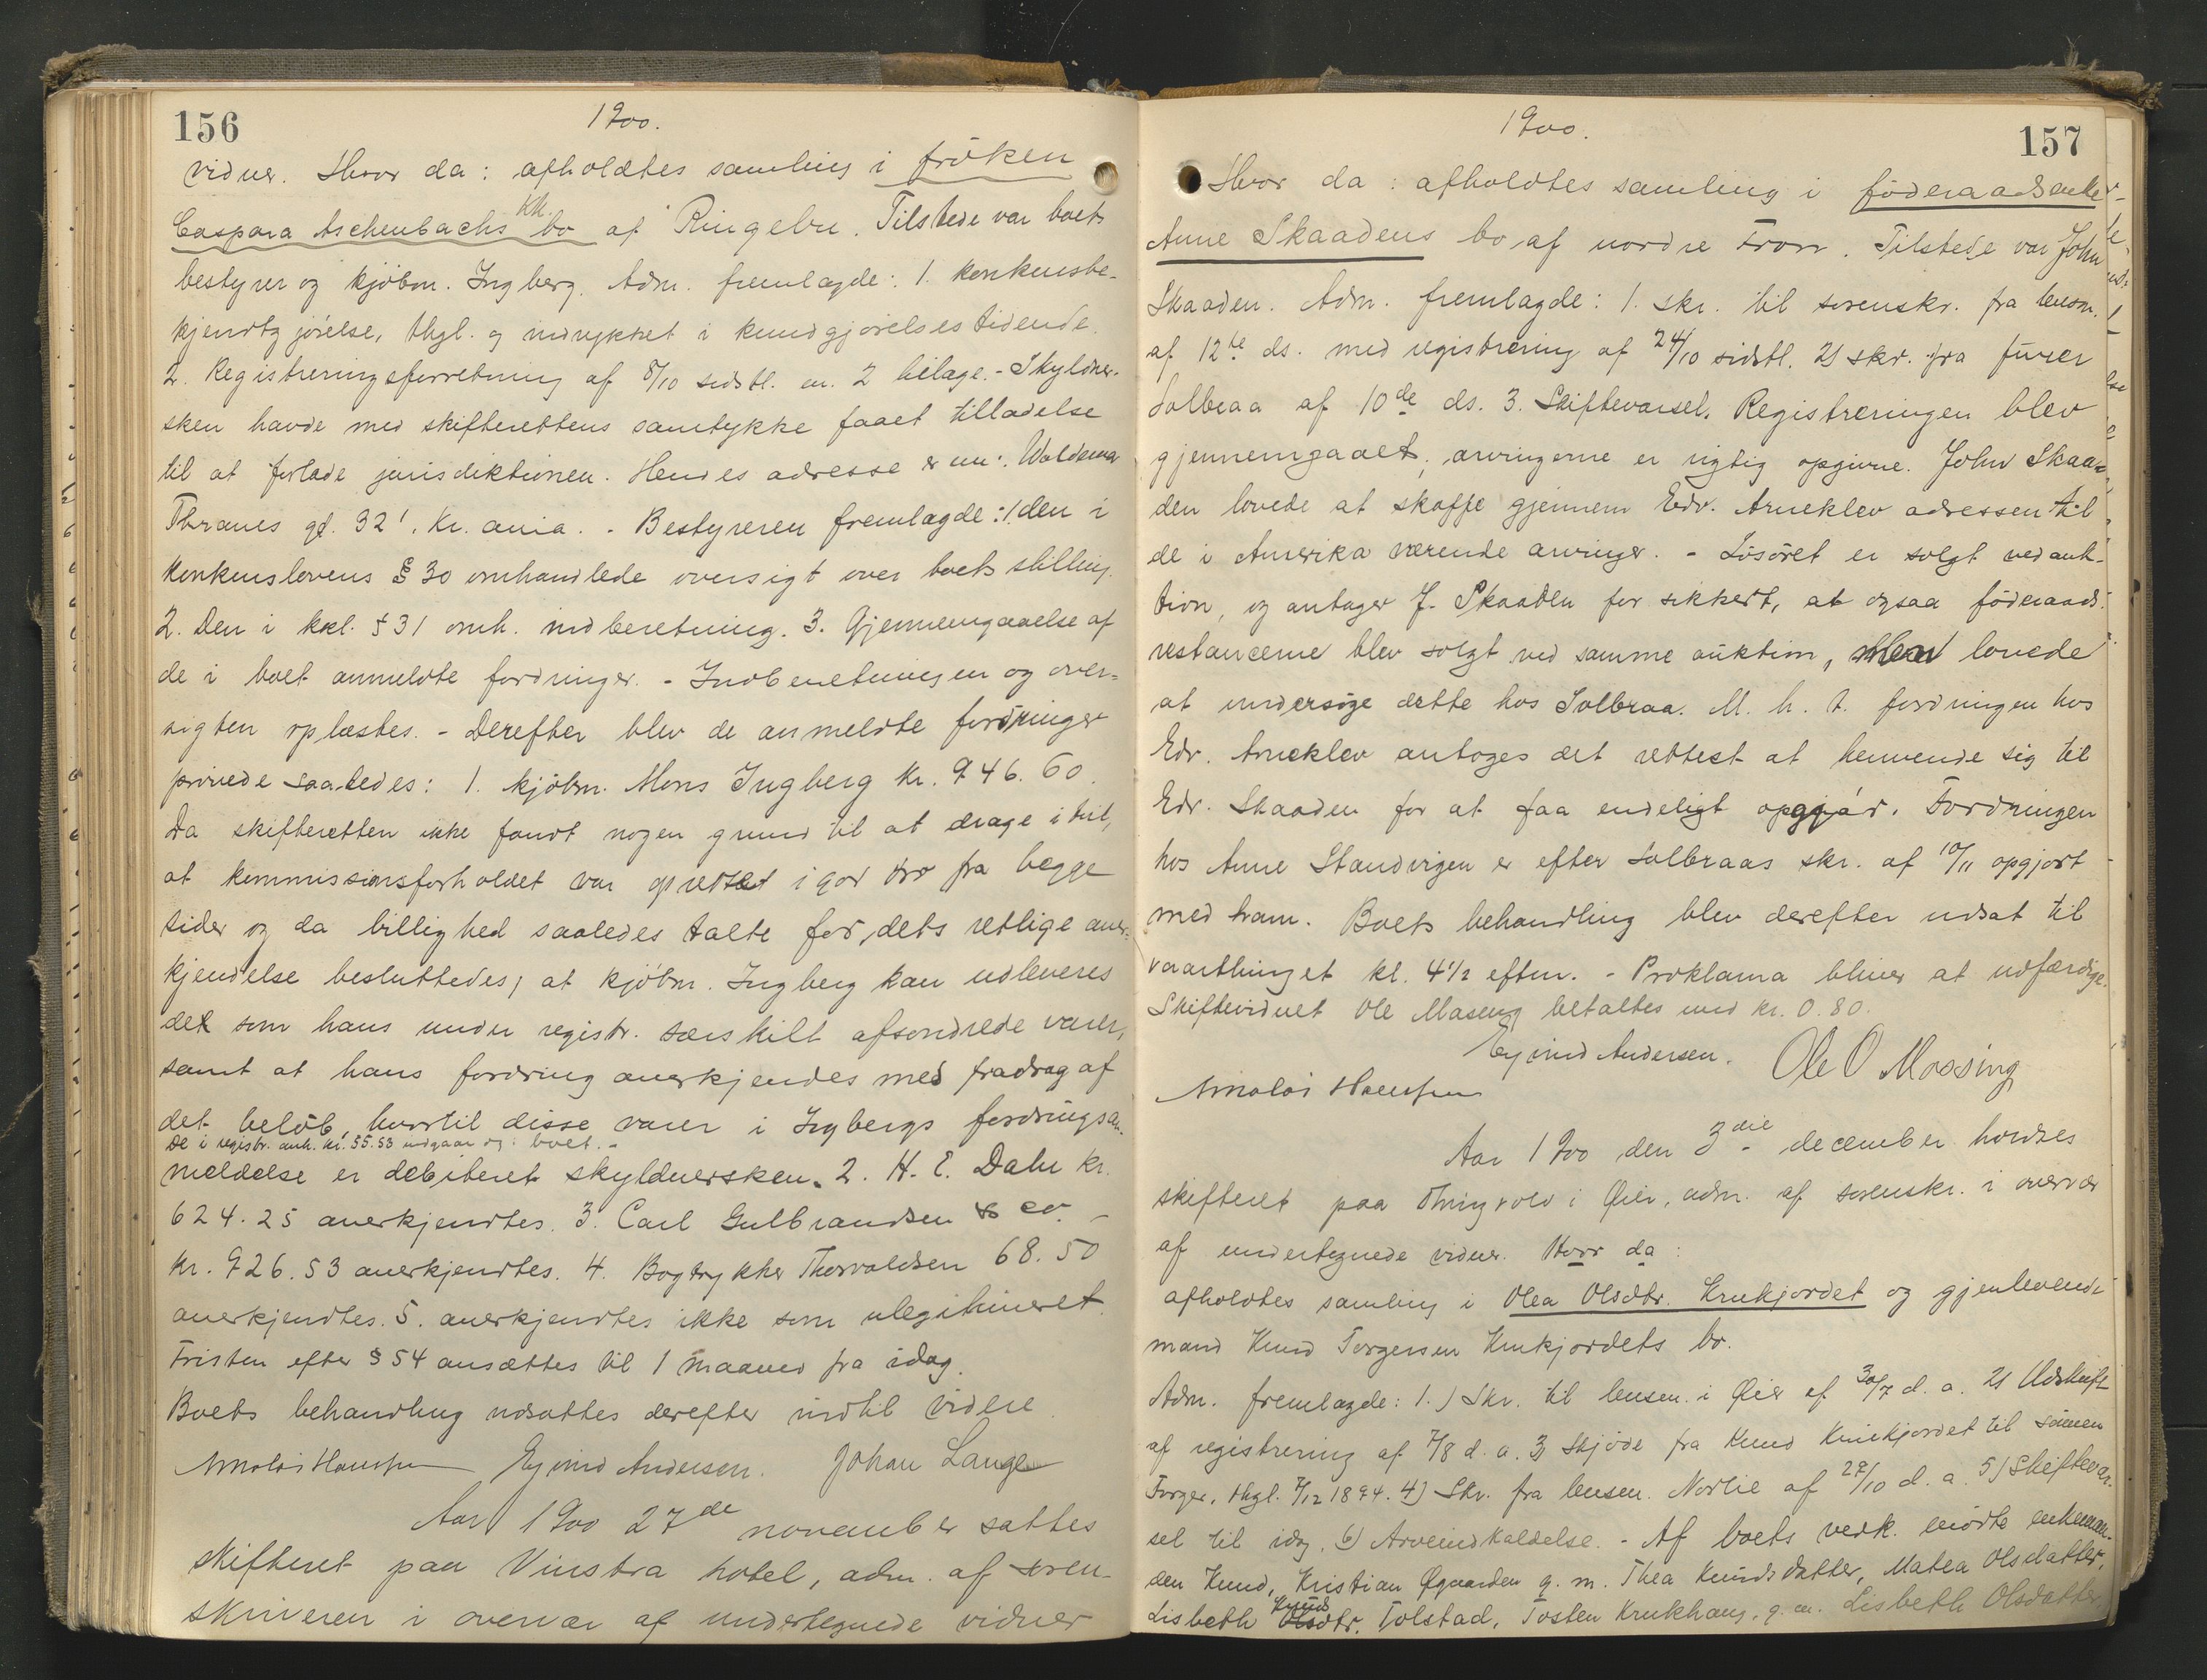 156
1900.
vidner. Hvor da: afholdtes samling i frøken
Caspara Aschenbachs kk. bo af Ringebu. Tilstede var boets
bestyrer og kjøbm. Ingberg. Adm. fremlagde: 1. konkursbe-
kjendtgjørelse, thgl. og indrykket i kundgjørelsestidende.
2. Registreringsforretning af 8/10 sidstl. m. 2 bilage. - Skyldner-
sken havde med skifterettens samtykke faaet tilladelse
til at forlade jurisdiktionen. Hendes adresse er nu: Waldemar
Thranes gd. 32', Kr.ania. - Bestyreren fremlagde: 1. den i
konkurslovens § 30 omhandlede oversigt over boets stilling.
2. Den i kkl. § 31 omh. indberetning. 3. Gjennemgaaelse af
de i boet anmeldte fordringer. - Indberetningen og over-
sigten oplæstes. - Derefter blev de anmeldte fordringer
prøvede saaledes: 1. kjøbm. Mons Ingberg kr. 946.60.
Da skifteretten ikke fandt nogen grund til at drage i tvil,
at kommissionsforholdet var oprettet i god tro fra begge
sider og da billighed saaledes talte for dets retlige aner-
kjendelse besluttedes, at kjøbm. Ingberg kan udleveres
det som hans under registr. særskilt afsondrede varer,
samt at hans fordring anerkjendes med fradrag af
det beløb, hvortil disse varer i Ingbergs fordringsan-
De i registr. anh. kr. 55.53 udgaar og: boet. -
meldelse er debiteret skyldnersken. 2. H. E. Dahl kr.
624.25 anerkjendtes. 3. Carl Gulbrandsen & co. -
kr. 926.53 anerkjendtes. 4. Bogtrykker Thorvaldsen 68.50
anerkjendtes. 5. anerkjendtes ikke som ulegitimeret.
Fristen efter § 54 ansættes til 1 maaned fra idag.
Boets behandling udsattes derefter indtil videre.
Eyvind Andersen. Johan Lange
Aar 1900 27de november sattes
skifteret paa Vinstra hotel, adm. af soren-
skriveren i overvær af undertegnede vidner
1900.
157
Hvor da: afholdtes samling i føderaadsenke
Anne Skaadens bo af nordre Fron. Tilstede var John
Skaaden. Adm. fremlagde: 1. skr. til sorenskr. fra lensm.
af 12te ds. med registrering af 24/10 sidstl. 2) skr. fra furer
Solbraa af 10de ds. 3. Skiftevarsel. Registreringen blev
gjennemgaaet, arvingerne er rigtig opgivne. John Skaa-
den lovede at skaffe gjennem Edv. Arneklev adressen til
de i Amerika værende arvinger. - Løsøret er solgt ved auk-
tion, og antager J. Skaaden for sikkert, at ogsaa føderaads-
restancerne blev solgt ved samme auktion, men lovede
at undersøge dette hos Solbraa. M. h. t. fordringen hos
Edv. Arneklev antoges det rettest at henvende sig til
Edv. Skaaden for at faa endeligt opgjør. Fordringen
hos Anne Standvigen er efter Solbraas skr. af 10/11 opgjort
med ham. Boets behandling blev derefter udsat til
vaarthinget kl. 4 1/2 efterm. - Proklama bliver at udfærdige.
Skiftevidnet Ole Maseng betaltes med kr. 0.80.
Eyvind Andersen. Ole O Moosing
Aar 1900 den 3die december holdtes
skifteret paa Thingvold i Øier, adm. af sorenskr. i overvær
af undertegnede vidner. Hvor da:
afholdtes samling i Olea Olsdtr. Krukjordet og gjenlevende
mand Knud Torgersen Krukjordets bo.
Adm. fremlagde: 1.) Skr. til lensm. i Øier af 30/7 d. a. 2) Udskrift
af registrering af 7/8 d. a. 3) Skjøde fra Knud Krukjordet til sønnen
Torger, thgl. 7/12 1894. 4) Skr. fra lensm. Norlie af 29/10 d. a. 5) Skiftevar-
sel til idag. 6) Arveindkaldelse. - Af boets vedk. mødte enkeman-
den Knud, Kristian Øgaarden g. m. Thea Knudsdatter, Matea Olsdatter,
Lisbeth Knudsdtr. Tolstad, Tosten Krukhaug, g. m. Lisbeth Olsdatter,